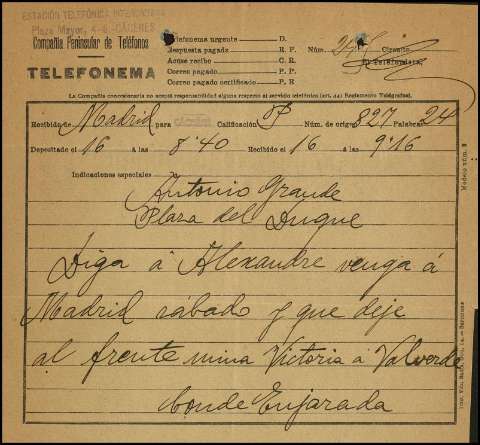 ESTACIÓN TELEFÓNICA INTERURBANA
Plaza Mayor, 4-6.-CÁCERES
Compañía Peninsular de Teléfonos
TELEFONEMA
Telefonema urgente D.
Respuesta pagada R. P.
Acuse recibo C. R.
Correo pagado P. P.
Correo pagado certificado P. R
Núm. Circuito
El Telefonista,
La Compañía concesionaria no acepta responsabilidad alguna respecto al servicio telefónico (art. 44) Reglamento Telégrafos).
Recibido de Madrid para CÁCERES Calificación P Núm. de origen 827 Palabras 24
Depositado el 16 á las 8'40 Recibido el 16 á las 9'16
Indicaciones especiales
Antonio Grande
Plaza del Duque
Diga á Alexandre venga á
Madrid sábado y que deje
al frente mina Victoria á Valverde
Conde Enjarada
Modelo núm. 2